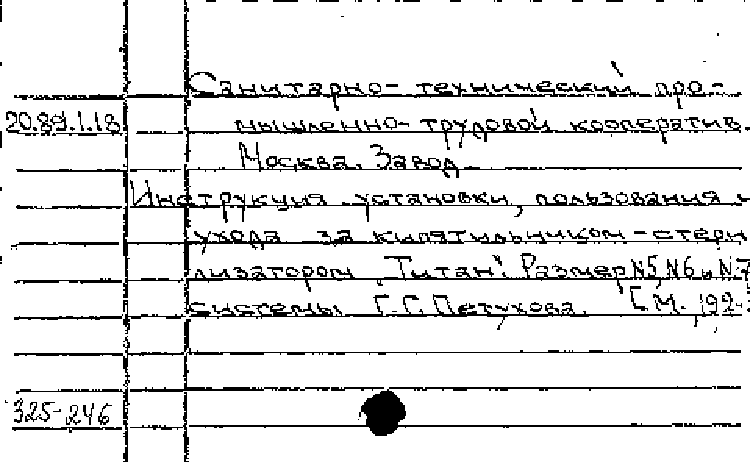 Санитарно-технический про-
20.89.1.18 мышленно-трудовой кооператив.
Москва. Завод
Инструкция установки, пользования и
ухода за кипятильником-стери
лизатором "Титан". Размер N5, N6 и N7
системы Г.С. Петухова. [М., 192-
325-246